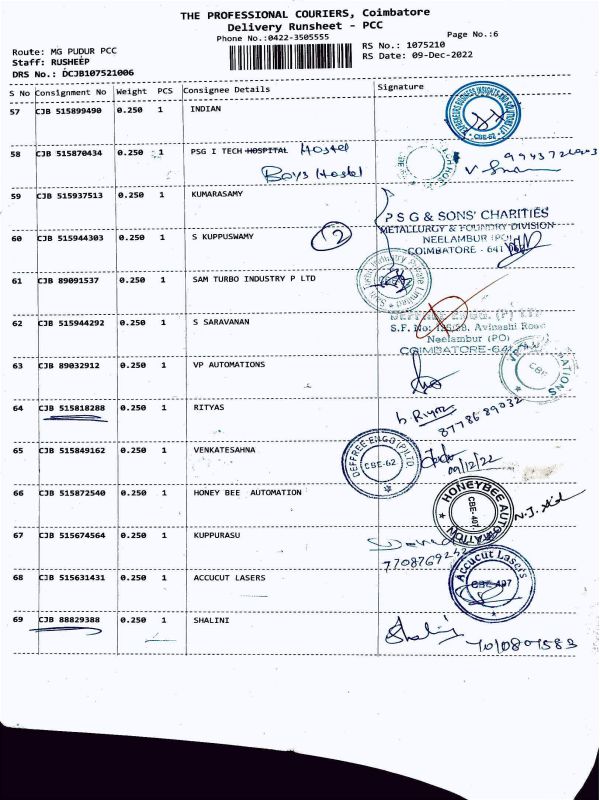 THE PROFESSIONAL COURIERS, Coimbatore
Delivery Runsheet - PCC
Phone No.:0422-3505555
Page No.:6
Route: MG PUDUR PCC
RS No.: 1075210
Staff: RUSHEEP
RS Date: 09-Dec-2022
DRS No.: DCJB107521006
S No Consignment No Weight PCS Consignee Details Signature
57 CJB 515899490 0.250 1 INDIAN
CBE-62
58 CJB 515870434 0.250 1 PSG I TECH HOSPITAL Hostel
Boys Hostel
59 CJB 515937513 0.250 1 KUMARASAMY
P S G & SONS' CHARITIES
METALLURGY & FOUNDRY DIVISION
60 CJB 515944303 0.250 1 S KUPPUSWAMY 12
NEELAMBUR (PO)
COIMBATORE - 641
61 CJB 89091537 0.250 1 SAM TURBO INDUSTRY P LTD
Sam Turbo Industry Private Limited
62 CJB 515944292 0.250 1 S SARAVANAN
DEFFREE ENGG. (P) LTD
S.F. No: Avinashi Road
Neelambur (PO)
COIMBATORE-641
63 CJB 89032912 0.250 1 VP AUTOMATIONS
VP AUTOMATIONS
CBE
64 CJB 515818288 0.250 1 RITYAS
8778689032
65 CJB 515849162 0.250 1 VENKATESAHNA
DEFFREE ENGG (P) LTD
CBE-62
09/12/22
66 CJB 515872540 0.250 1 HONEY BEE AUTOMATION
HONEYBEE AUTOMATION
CBE-407
67 CJB 515674564 0.250 1 KUPPURASU
68 CJB 515631431 0.250 1 ACCUCUT LASERS
Accucut Lasers
CBE-407
69 CJB 88829388 0.250 1 SHALINI
Shalini